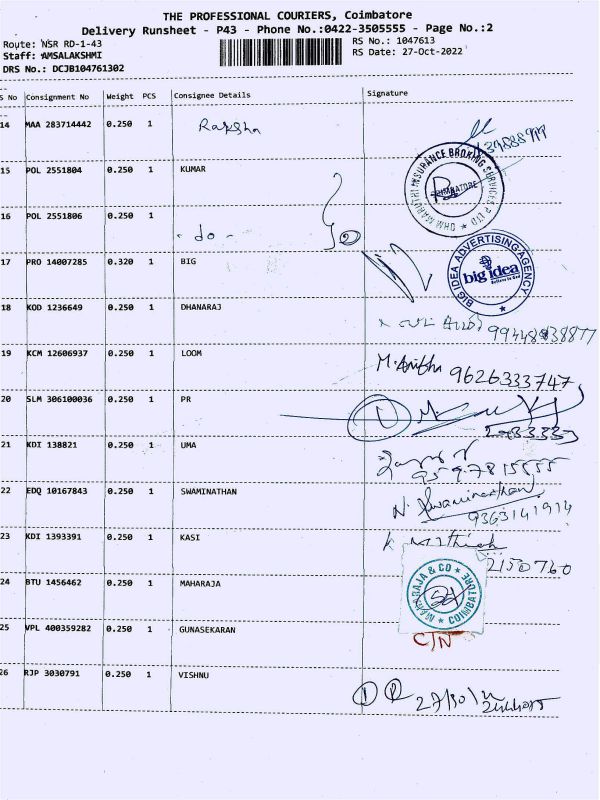 THE PROFESSIONAL COURIERS, Coimbatore
Delivery Runsheet - P43 - Phone No.:0422-3505555 - Page No.:2
Route: NSR RD-1-43
RS No.: 1047613
Staff: AMSALAKSHMI
RS Date: 27-Oct-2022
DRS No.: DCJB104761302
S No Consignment No Weight PCS Consignee Details Signature
14 MAA 283714442 0.250 1 Raksha
15 POL 2551804 0.250 1 KUMAR
MARUTHI INSURANCE BROKING SERVICES P LTD
COIMBATORE
16 POL 2551806 0.250 1 - do -
17 PRO 14007285 0.320 1 BIG
BIG IDEA ADVERTISING AGENCY
big idea
18 KOD 1236649 0.250 1 DHANARAJ
19 KCM 12606937 0.250 1 LOOM M. Anitha 9626333747
20 SLM 306100036 0.250 1 PR
21 KDI 138821 0.250 1 UMA
9597815555
22 EDQ 10167843 0.250 1 SWAMINATHAN N. Swaminathan
9363141914
23 KDI 1393391 0.250 1 KASI K
2150760
24 BTU 1456462 0.250 1 MAHARAJA
MAHARAJA & CO
COIMBATORE
25 VPL 400359282 0.250 1 GUNASEKARAN C/N
26 RJP 3030791 0.250 1 VISHNU 27/10/22